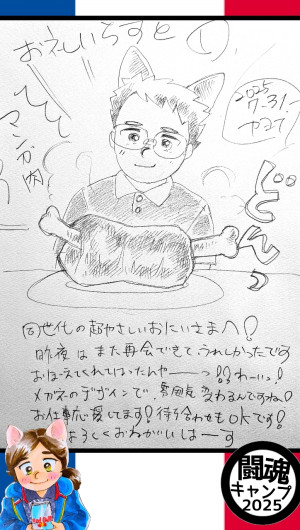 おえしいらすと①
2025
7-31
カヨコ
マンガ肉
どんっ
同世代の超やさしいおにいさまへ!
昨夜はまた再会できて、うれしかったです
おぼえてくれてはったんやーーっ!!わーいっ!
メガネのデザインで、雰囲気変わるんですね!
お仕事応援してます!待ち合わせもOKです!
よろしくおねがいしまーす
闘魂
キャンプ
2025